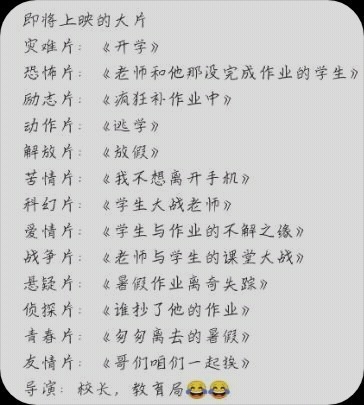 即将上映的大片
灾难片：《开学》
恐怖片：《老师和他那没完成作业的学生》
励志片：《疯狂补作业中》
动作片：《逃学》
解放片：《放假》
苦情片：《我不想离开手机》
科幻片：《学生大战老师》
爱情片：《学生与作业的不解之缘》
战争片：《老师与学生的课堂大战》
悬疑片：《暑假作业离奇失踪》
侦探片：《谁抄了他的作业》
青春片：《匆匆离去的暑假》
友情片：《哥们咱们一起挨》
导演：校长，教育局😂😂